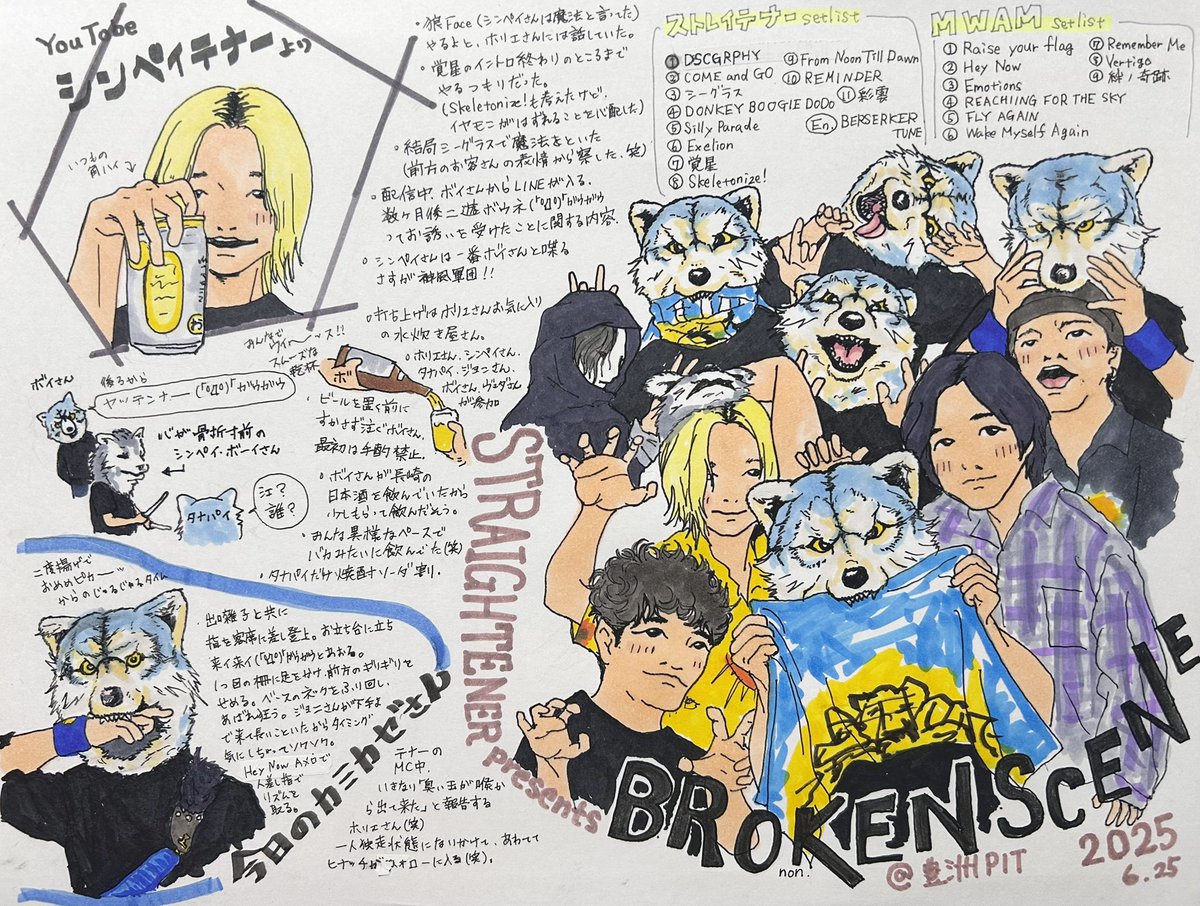 YouTobe
シンペイテナーより
いつもの
角ハイ
・狼Face(シンペイさんは魔法と言ってた)
やるよと、ホリエさんには話していた。
・覚星のイントロ終わりのところまで
やるつもりだった。
(Skeletonize!も考えたけど、
イヤモニがはずれることを心配した)
・結局シーグラスで魔法をといた
(前方のお客さんの表情から察した、笑)
・配信中、ボイさんからLINEが入る、
数ヶ月後二
つてお誘いを受けたことに関する内容、
・シンペイさんは一番ボイさんと喋る
さすが神風軍団!!
・打ち上げはホリエさんお気に入り
の水炊き屋さん。
・ホリエさん、シンペイさん、
タカパイ、ジョニさん、
ボイさん、
が参加
みんなで
ウィ〜〜〜ス!!
スムーズな
乾杯
ボ
・ビールを置く前に
すかさず注ぐボイさん、
最初は手酌禁止。
・ボイさんが長崎の
日本酒を飲んでいたから
少しもらって飲んだそう。
・みんな異様なペースで
バカみたいに飲んでた(笑)
・タナパイだけ焼酎ソーダ割り、
ボイさん
後ろから
ヤッテンナー("Д")"ガウガウ
心が骨折寸前の
シンペイ・ボーイさん
タナパイ
江?
誰?
二度揚げで
おめめピカ〜〜
からのじゅるじゅるタイム
出囃子と共に
指を客席に差し登上。お立ち台に立ち
来イ来イ("Д")"ガウガウとあおる。
1つ目の柵に足をかけ、前方のギリギリで
せめる。ベースのネックをふり回し、
あばれ狂う。ジョニさんが下手よ
で来て長いこといたからタイミング
気にしちゃってソワソワ。
Hey Now Aメロで
人差し指で
リズムを
取る。
今日のカミカゼさん
テナーの
MC中、
いきなり「臭い玉が喉か
ら出て来た」と報告する
ホリエさん(笑)
一人独走状態になりかけて、あわてて
ヒナッチがフォローに入る(笑)。
ストレイテナー setlist
① DSCGRPHY
② COME and GO
③ シーグラス
④ DONKEY BOOGIE DODO
⑤ Silly Parade
⑥ Exelion
⑦ 覚星
⑧ Skeletonize!
⑨ From Noon Till Dawn
⑩ REMINDER
⑪ 彩雲
En. BERSERKER
TUNE
MWAM setlist
① Raise your flag
② Hey Now
③ Emotions
④ REACHIING FOR THE SKY
⑤ FLY AGAIN
⑥ Wake Myself Again
⑦ Remember Me
⑧ Vertigo
⑨ 絆ノ奇跡
STRAIGHTENER
presents
BROKEN SCENE
non.
@豊洲PIT
2025
6.25